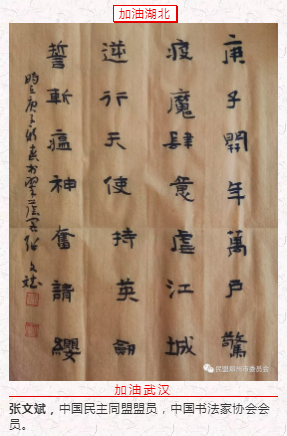 加油湖北
庚子開年萬戶驚
疫魔肆意虐江城
逆行天使持英劍
誓斬瘟神奮請纓
庚子新春於翠 张文斌
民盟郑州市委员会
加油武汉
张文斌，中国民主同盟盟员，中国书法家协会会
员。